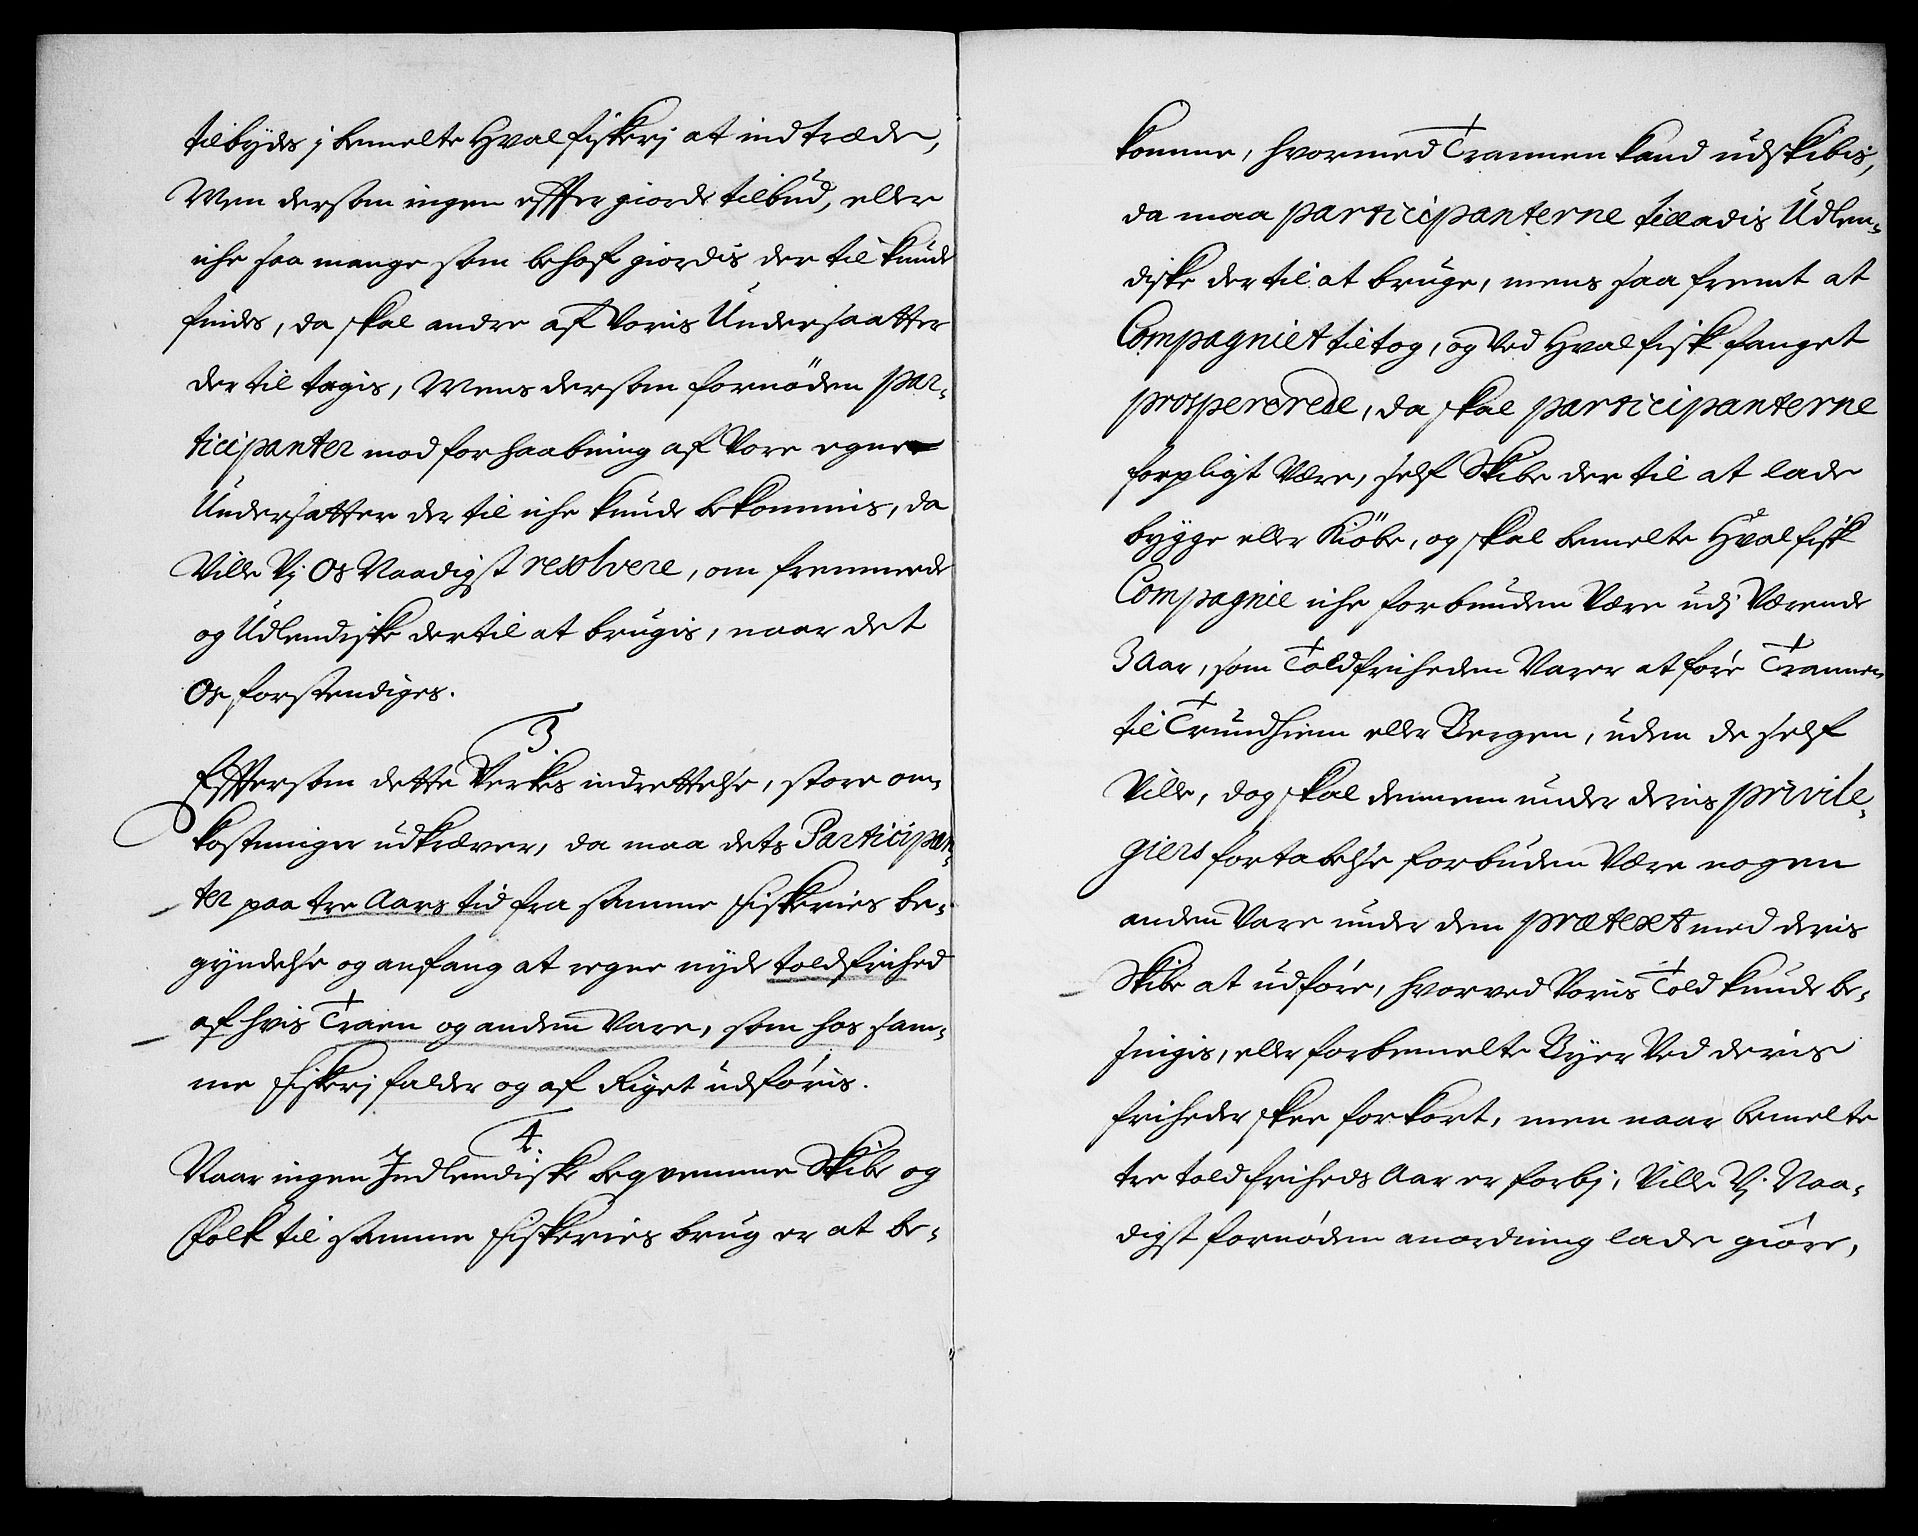 tilbydes j bemelte Hvalfiskerj at indtræde,
Men dersom ingen effter giorde tilbud, eller
iche saa mange som behof giordis der til kunde
findes, da skal andre af Voris Undersaatter
der til tagis, Mens dersom fornöden par-
ticipanter mod forhaabning af Vore egne
Undersatter der til iche kunde bekommis, da
Ville Vj Os Naadigst resolvere, om fremmede
og Udlendiske dertil at brugis, naar det
Os forstendiges.
3
Effersom dette Verkes indrettelse, store om-
kostninger udkræver, da maa dets Participan-
ter paa tre Aars tid fra samme Fiskeries be-
gyndelse og anfang at regne nyde toldfrihed
af hvis Traen og anden Vare, som hos sam-
me Fiskerj falder og af Riget udföris.
4
Naar ingen Indlendiske beqvemme Skibe og
Folk til samme Fiskeries brug er at be-
komme, hvormed Trannen kand udskibis,
da maa participanterne tilladis Udlen-
diske der til at bruge, mens saa fremt at
Compagniet tiltog, og Ved Hvalfiskfanget
prospererede, da skal participanterne
forpligt Være, self Skibe der til at lade
bygge eller Kiöbe, og skal bemelte Hvalfisk
Compagnie iche forbunden Være udj Værende
3 Aar, som Toldfriheden Varer at före Trannen
til Trundhiem eller Bergen, uden de self
Ville, dog skal dennem under deris privile-
giers fortabelse forbuden Være nogen
anden Vare under dem prætext med deris
Skibe at udföre, hvorved Voris Told kunde be-
suigis, eller forbemelte Byer Ved deris
friheder skee forkort, men naar bemelte
tre told friheds Aar er forbj, Ville Vj Naa-
digst fornöden anordning lade giöre,